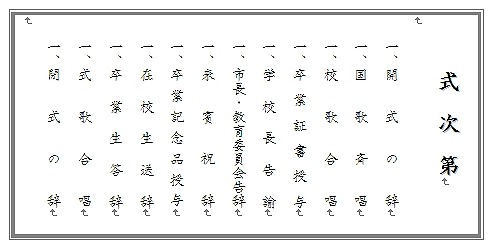 式次第
一、開式の辞
一、国歌斉唱
一、校歌合唱
一、卒業証書授与
一、学校長告諭
一、市長・教育委員会告辞
一、来賓祝辞
一、卒業記念品授与
一、在校生送辞
一、卒業生答辞
一、式歌合唱
一、閉式の辞